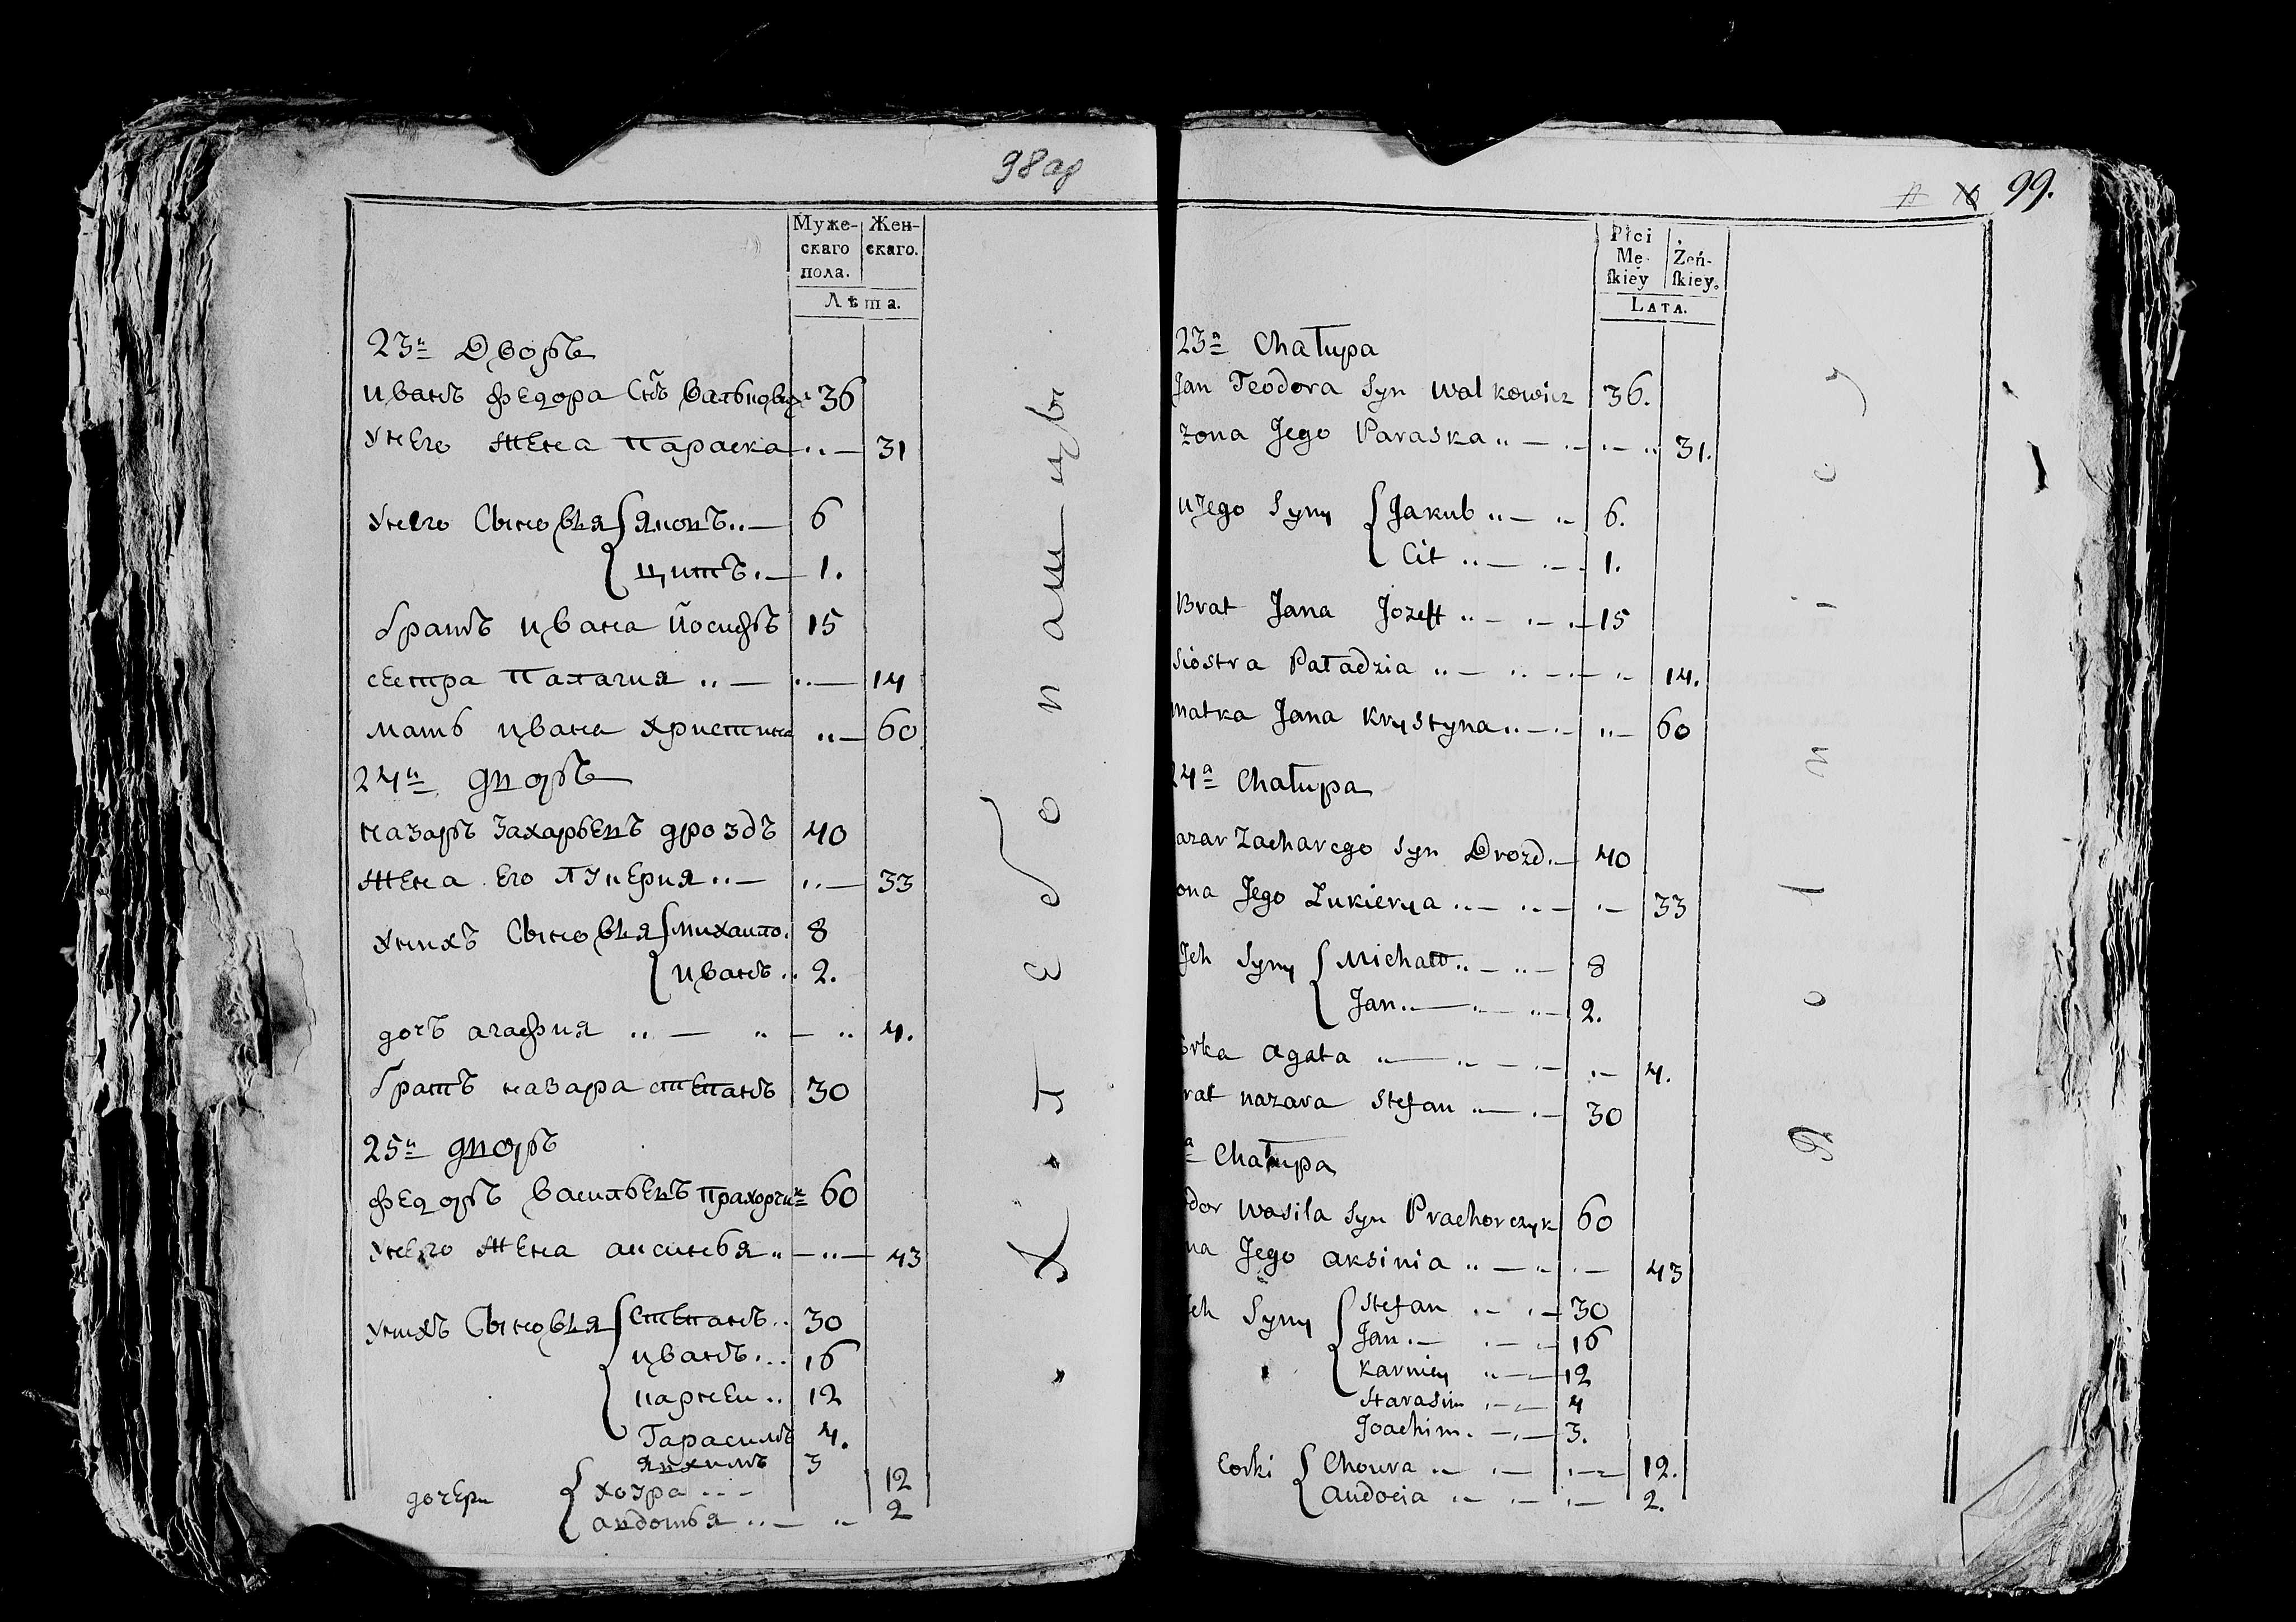 98 об
Муже-
скаго
пола.
Жен-
скаго.
Лѣта.
23й Дворъ
иванъ федора Снъ валькович 36
унего жена параска 31
унего Сыновья { якопъ 6
цитъ 1.
братъ ивана йосифъ 15
сестра палагия 14
мать ивана христина 60
24й дворъ
назаръ захарьевъ дроздъ 40
жена его лукерия 33
унихъ Сыновья { михаило 8
иванъ 2.
дочъ агафия 4.
братъ назара степанъ 30
25й дворъ
федоръ васильевъ прахорчик 60
унего жена аксинья 43
унихъ Сыновья { степанъ 30
иванъ 16
карней 12
Гарасимъ 4.
якимъ 3
дочери { хоура 12
авдотья 2
Х. Т Е Б О П А Ш Ц Ы
99.
Płci
Mę-
skiey
Żeń-
skiey.
LATA.
23a Chałupa
Jan Teodora Syn Walkowicz 36.
zona Jego Paraska 31.
u Jego Syny { Jakub 6.
Cit 1.
Brat Jana Jozeff 15
Siostra Paładzia 14.
matka Jana Krystyna 60
24a Chałupa
azar Zacharego Syn Drozd 40
ona Jego Łukierya 33
Jch Syny { Michało 8
Jan 2.
orka agata 4.
rat nazara Stefan 30
a Chałupa
dor Wasila Syn Prachorczyk 60
na Jego aksinia 43
Jch Syny { Stefan 30
Jan 16
Karniey 12
Harasim 4
Joachim 3.
Corki { Choura 12.
audocia 2.
R o l n i c y